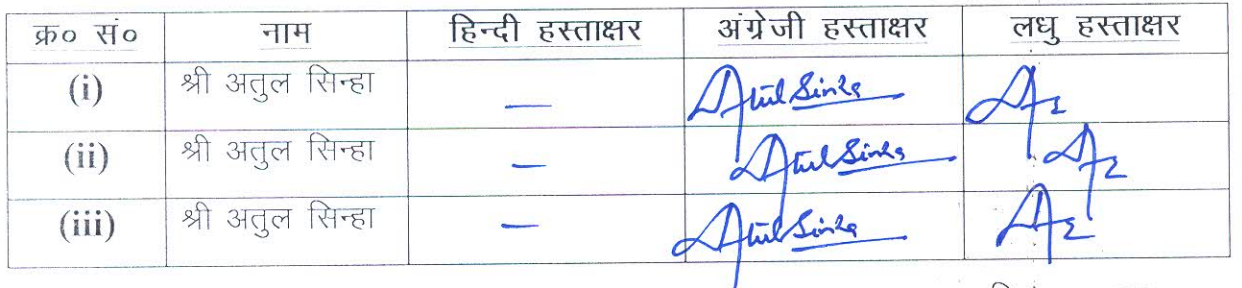 क्र० सं० नाम हिन्दी हस्ताक्षर अंग्रेजी हस्ताक्षर लधु हस्ताक्षर
(i) श्री अतुल सिन्हा — Atul Sinha
(ii) श्री अतुल सिन्हा — Atul Sinha
(iii) श्री अतुल सिन्हा — Atul Sinha